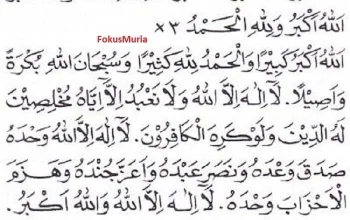 اَللهُ اَكْبَرُ وَلِلّٰهِ الْحَمْدُ ×٣
FokusMuria
اَللهُ اَكْبَرُ كَبِيْرًا وَالْحَمْدُ لِلّٰهِ كَثِيْرًا وَسُبْحَانَ اللهِ بُكْرَةً
وَاَصِيْلًا. لَآ اِلٰهَ اِلَّا اللهُ وَلَا نَعْبُدُ اِلَّا اِيَّاهُ مُخْلِصِيْنَ
لَهُ الدِّيْنَ وَلَوْكَرِهَ الْكَافِرُوْنَ. لَآ اِلٰهَ اِلَّا اللهُ وَحْدَهُ
صَدَقَ وَعْدَهُ وَنَصَرَ عَبْدَهُ وَاَعَزَّجُنْدَهُ وَهَزَمَ
الْاَحْزَابَ وَحْدَهُ. لَآ اِلٰهَ اِلَّا اللهُ وَاللهُ اَكْبَرُ.